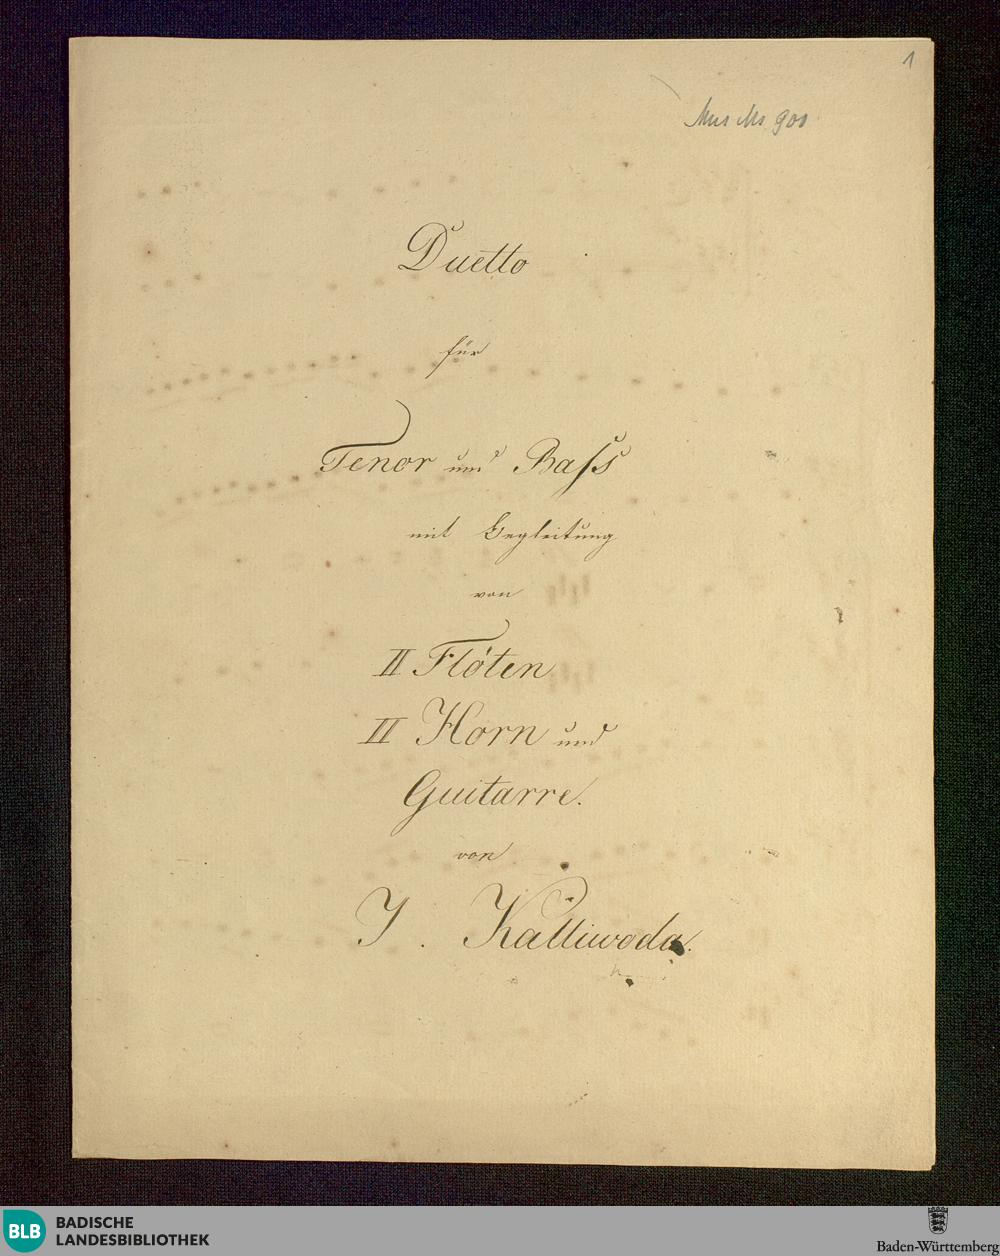 1
Mus Ms 900
Duetto
für
Tenor und Baſs
mit Begleitung
von
II Flöten
II Horn und
Guitarre.
von
J. Kalliwoda.
BLB BADISCHE
LANDESBIBLIOTHEK
Baden-Württemberg